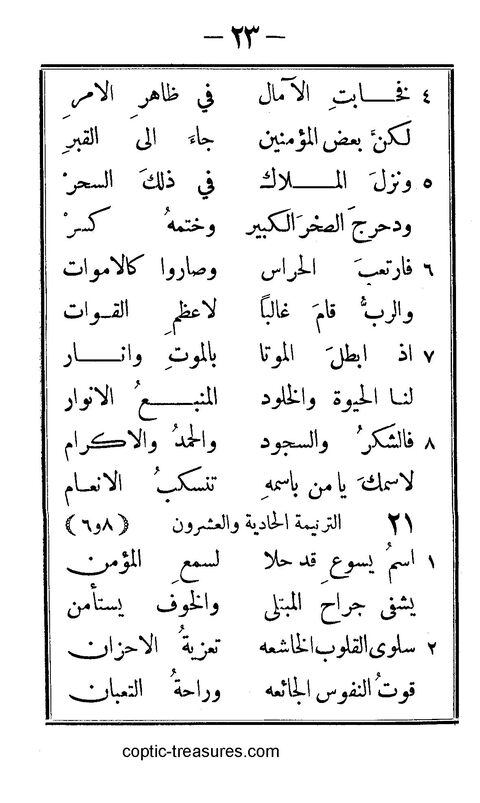 — ٢٣ —
٤ فخـابتِ الآمال في ظاهرِ الامرِ
لكنَّ بعض المؤمنين جاءَ الى القبرِ
٥ ونزلَ المـلاك في ذلكَ السحرْ
ودحرجَ الصخرَ الكبير وختمهُ كسرْ
٦ فارتعبَ الحراس وصاروا كالاموات
والربُّ قامَ غالبًا لاعظمِ القوات
٧ اذ ابطلَ الموتا بالموتِ وانـار
لنا الحيوة والخلود المنبـعُ الانوار
٨ فالشكرُ والسجود والحمدُ والاكرام
لاسمكَ يا من باسمهِ تنسكبُ الانعام
٢١ الترنيمة الحادية والعشرون (٨و٦)
١ اسمُ يسوعِ قد حلا لسمعِ المؤمن
يشفى جراح المبتلى والخوف يستأمن
٢ سلوى القلوب الخاشعه تعزيةُ الاحزان
قوتُ النفوس الجائعه وراحةُ التعبان
coptic-treasures.com